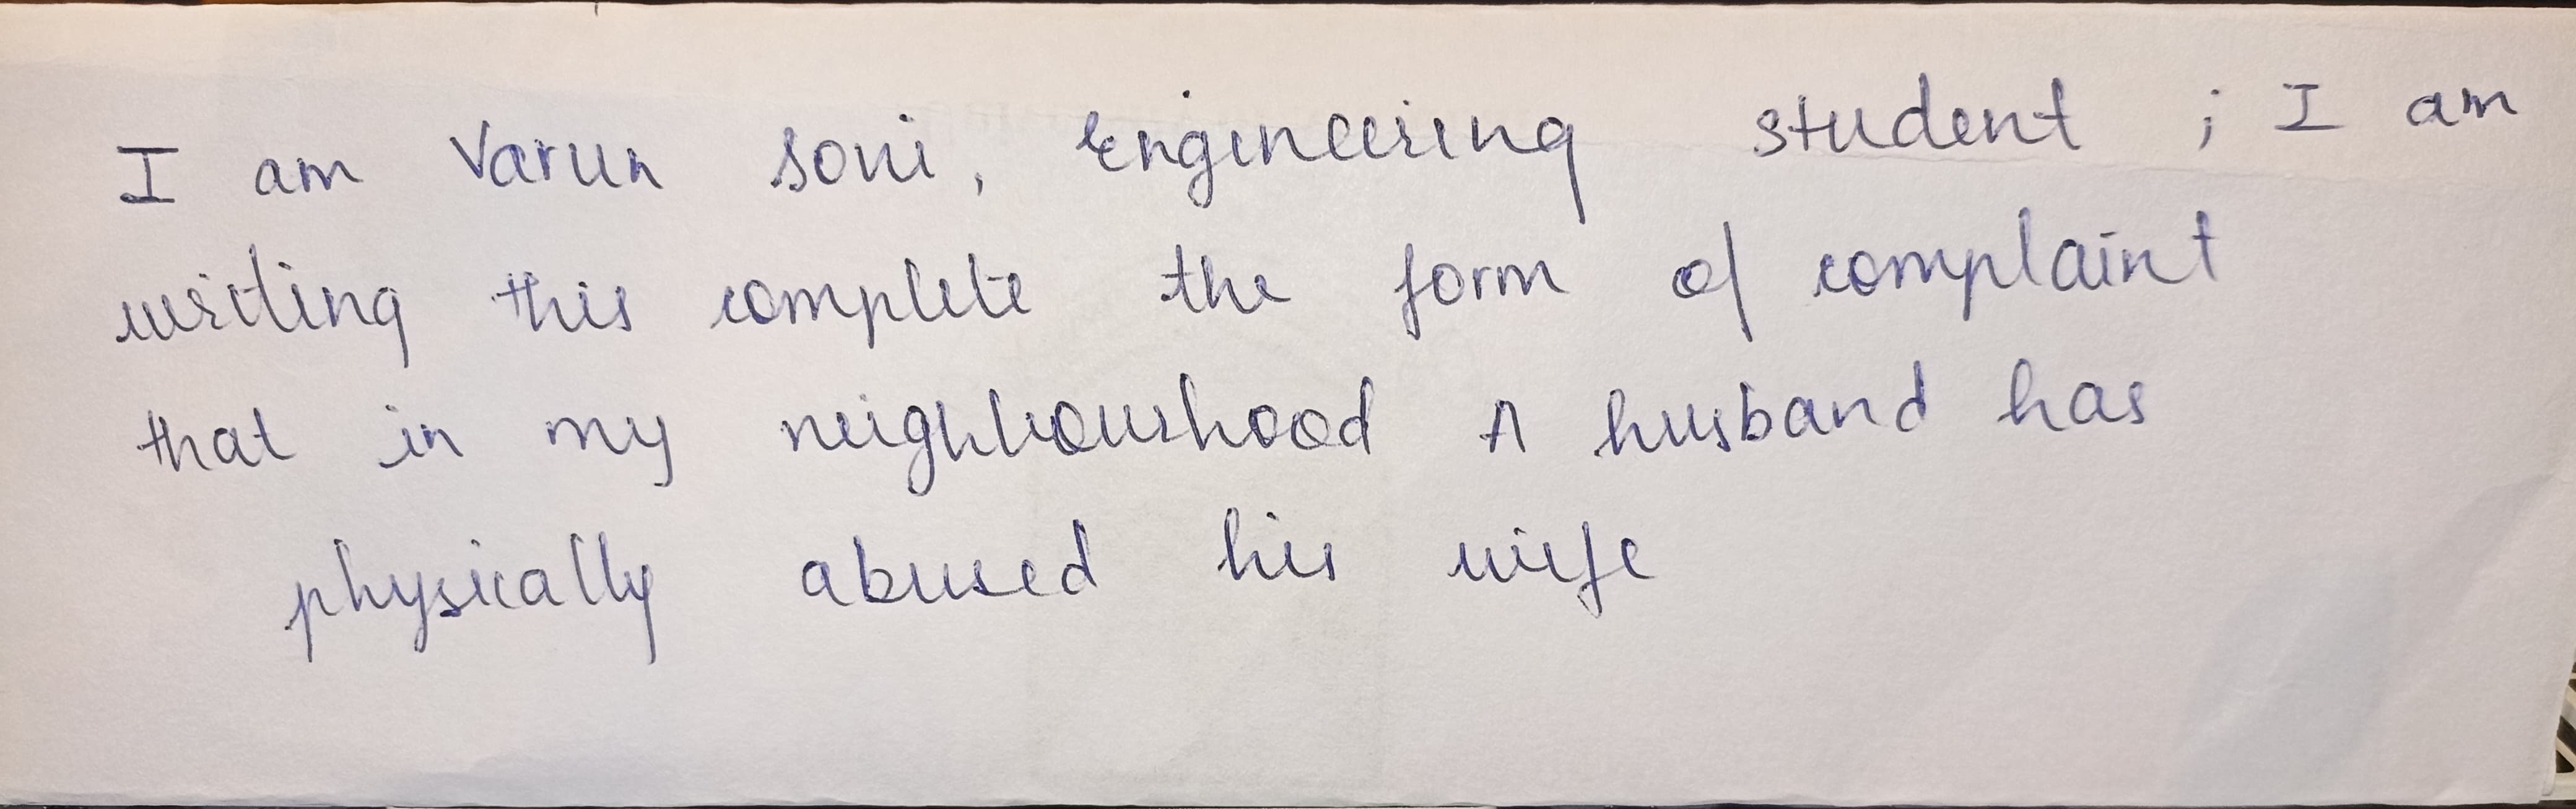 I am Varun soni, Engineering student ; I am
writing this complete the form of complaint
that in my neighbourhood A husband has
physically abused his wife